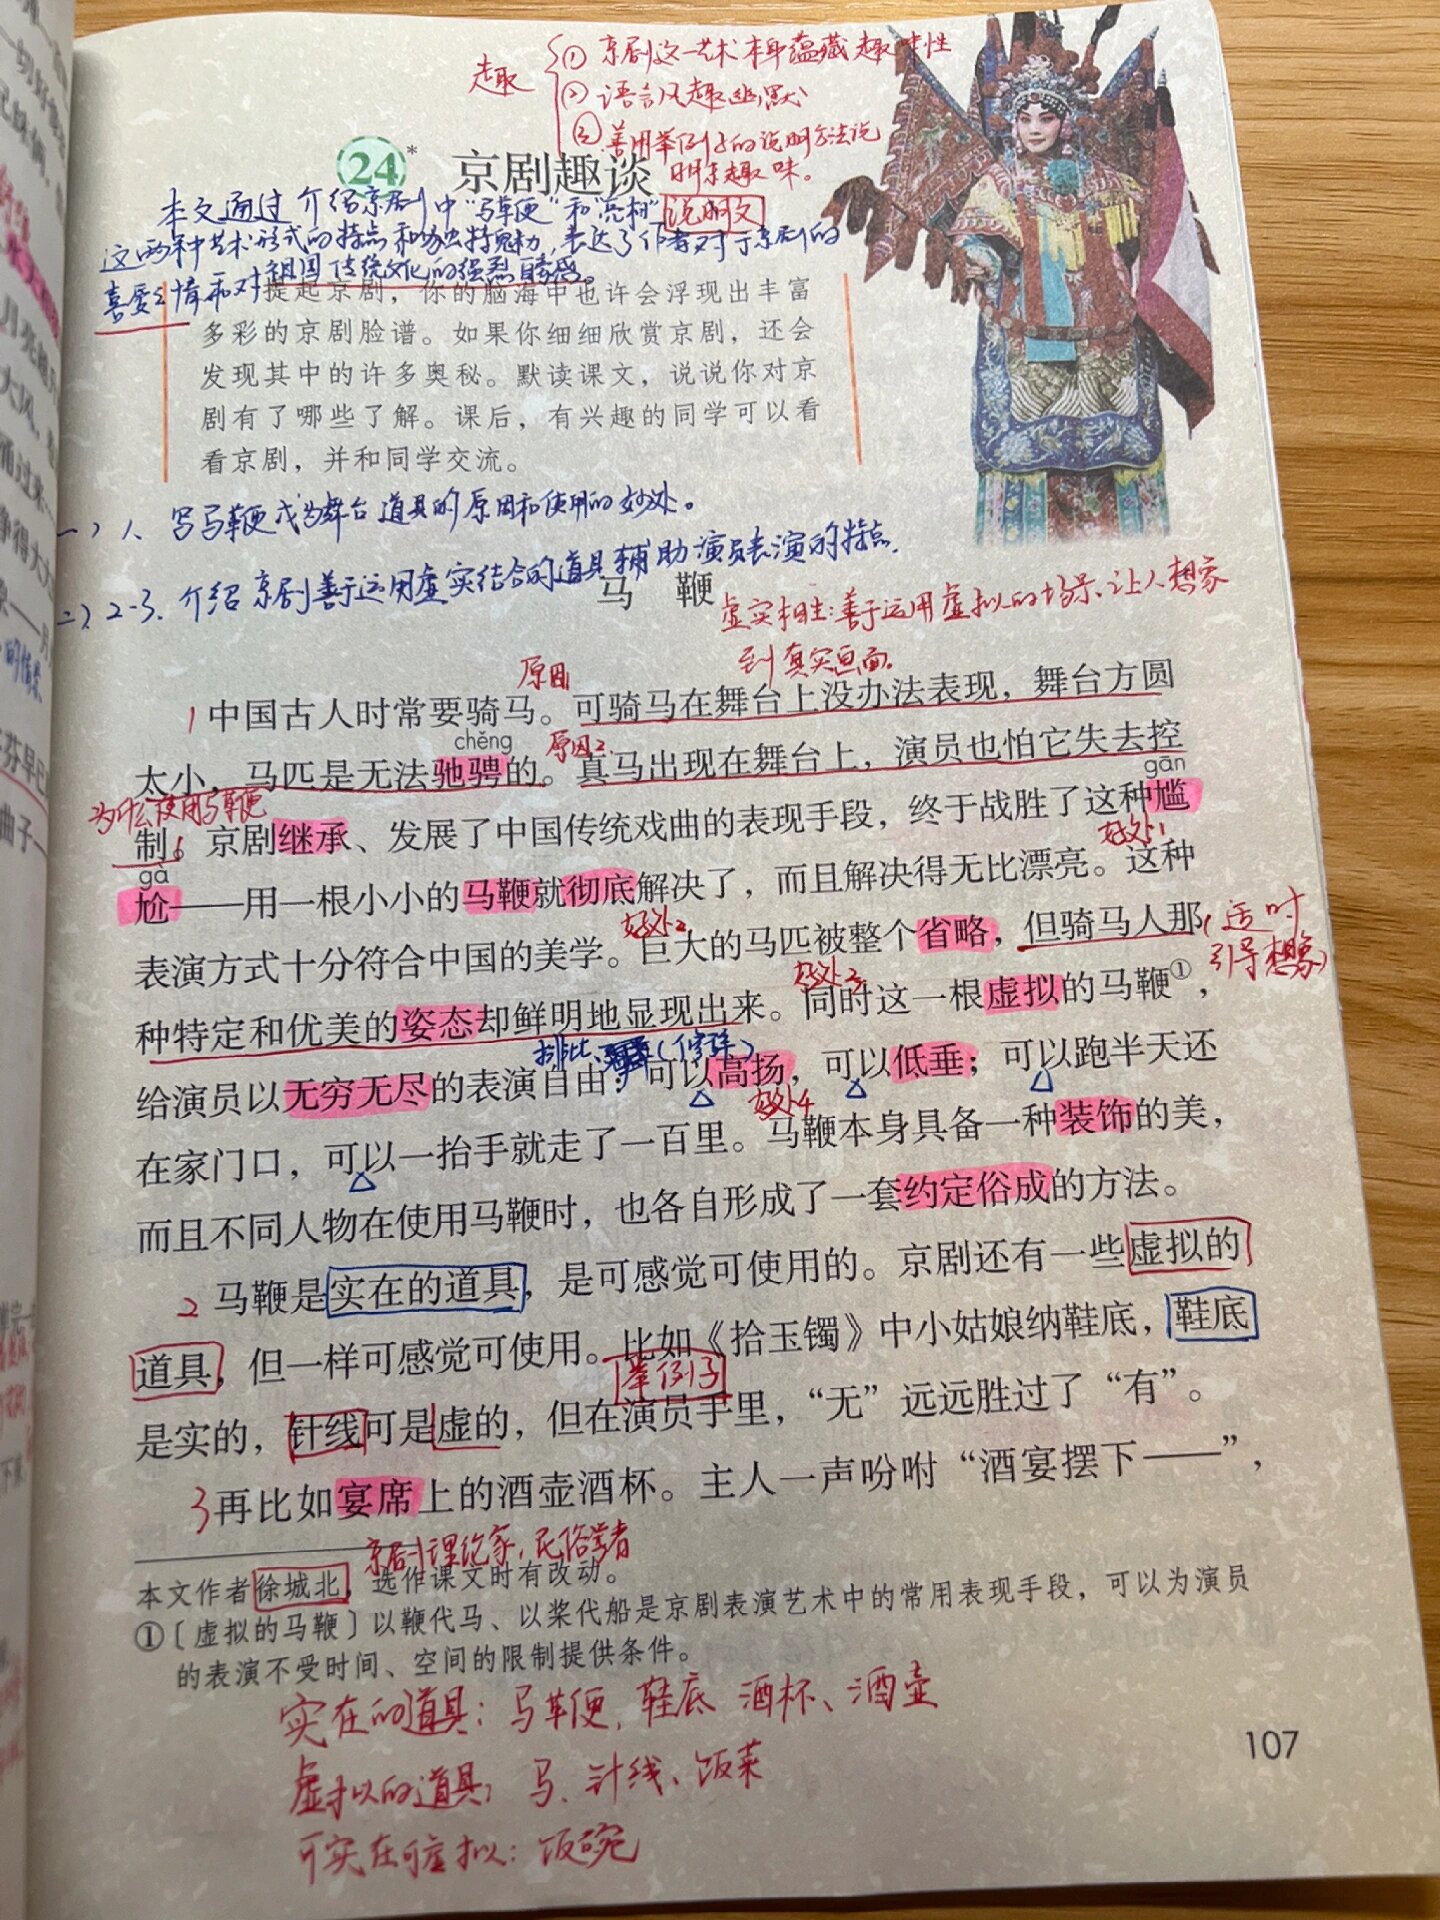 趣
① 京剧这一艺术本身蕴藏趣味性
② 语言风趣幽默
③ 善用举例子的说明方法说
明京趣味。
24* 京剧趣谈
本文通过介绍京剧中“马鞭”和“亮相” 说明文
这两种艺术形式的特点和独特魅力,表达了作者对于京剧的
喜爱之情和对祖国传统文化的强烈自豪感。
提起京剧，你的脑海中也许会浮现出丰富
多彩的京剧脸谱。如果你细细欣赏京剧，还会
发现其中的许多奥秘。默读课文，说说你对京
剧有了哪些了解。课后，有兴趣的同学可以看
看京剧，并和同学交流。
一、1、写马鞭成为舞台道具的原因和使用的妙处。
二、2-3、介绍京剧善于运用虚实结合的道具辅助演员表演的特点.
马 鞭
虚实相生:善于运用虚拟的场景、让人想象
到真实画面。
原因1
1 中国古人时常要骑马。可骑马在舞台上没办法表现，舞台方圆
chěng
原因2
太小，马匹是无法驰骋的。真马出现在舞台上，演员也怕它失去控
为什么使用马鞭
gān
制。京剧继承、发展了中国传统戏曲的表现手段，终于战胜了这种尴
gà
好处1
尬——用一根小小的马鞭就彻底解决了，而且解决得无比漂亮。这种
好处2
表演方式十分符合中国的美学。巨大的马匹被整个省略，但骑马人那
(适时
引导想象)
好处3
种特定和优美的姿态却鲜明地显现出来。同时这一根虚拟的马鞭①，
排比、(修辞)
给演员以无穷无尽的表演自由：可以高扬，可以低垂；可以跑半天还
好处4
在家门口，可以一抬手就走了一百里。马鞭本身具备一种装饰的美，
而且不同人物在使用马鞭时，也各自形成了一套约定俗成的方法。
2 马鞭是实在的道具，是可感觉可使用的。京剧还有一些虚拟的
道具，但一样可感觉可使用。比如《拾玉镯》中小姑娘纳鞋底，鞋底
举例子
是实的，针线可是虚的，但在演员手里，“无”远远胜过了“有”。
3 再比如宴席上的酒壶酒杯。主人一声吩咐“酒宴摆下——”，
京剧理论家,民俗学者
本文作者徐城北，选作课文时有改动。
①〔虚拟的马鞭〕以鞭代马、以桨代船是京剧表演艺术中的常用表现手段，可以为演员
的表演不受时间、空间的限制提供条件。
实在的道具: 马鞭, 鞋底 酒杯、酒壶
虚拟的道具: 马、针线、饭菜
可实在可虚拟: 饭碗
107